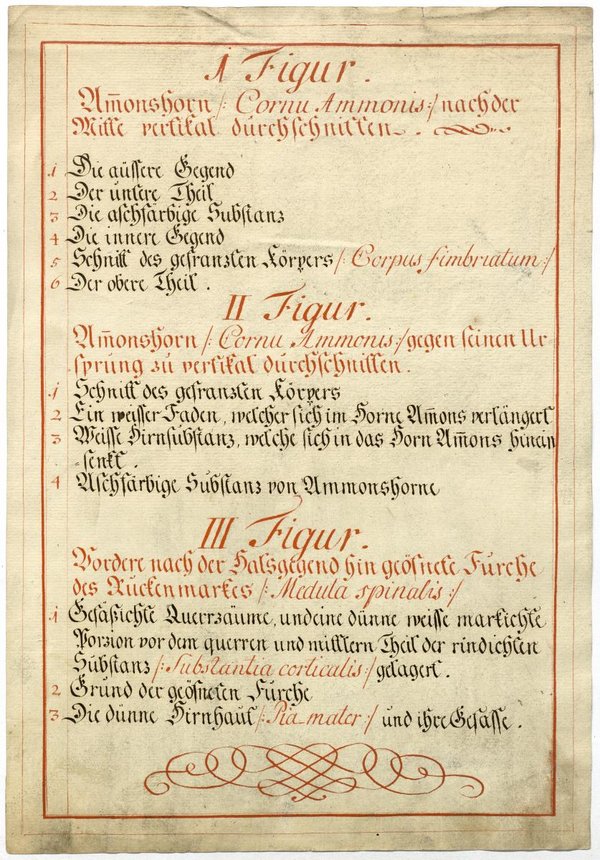 1 Figur.
Am̄onshorn /: Cornu Ammonis :/ nach der
Mitte vertikal durchschnitten.
1 Die äussere Gegend
2 Der untere Theil
3 Die aschfarbige Substanz
4 Die innere Gegend
5 Schnitt des gefranzten Körpers /: Corpus fimbriatum :/
6 Der obere Theil.
II Figur.
Am̄onshorn /: Cornu Ammonis :/ gegen seinen Ur-
sprung zu vertikal durchschnitten.
1 Schnitt des gefranzten Körpers
2 Ein weisser Faden, welcher sich im Horne Am̄ons verlängert
3 Weisse Hirnsubstanz, welche sich in das Horn Am̄ons hinein
senkt.
4 Aschfarbige Substanz von Ammonshorne
III Figur.
Vordere nach der Halsgegend hin geöfnete Furche
des Ruckenmarkes /: Medula spinalis :/
1 Gefäßichte Querrzäume, und eine dünne weisse markichte
Porzion vor dem querren und mittlern Theil der rindichten
Substanz /: Substantia corticalis :/ gelagert.
2 Grund der geöfneten Furche
3 Die dünne Hirnhaut /: Pia mater :/ und ihre Gefässe.